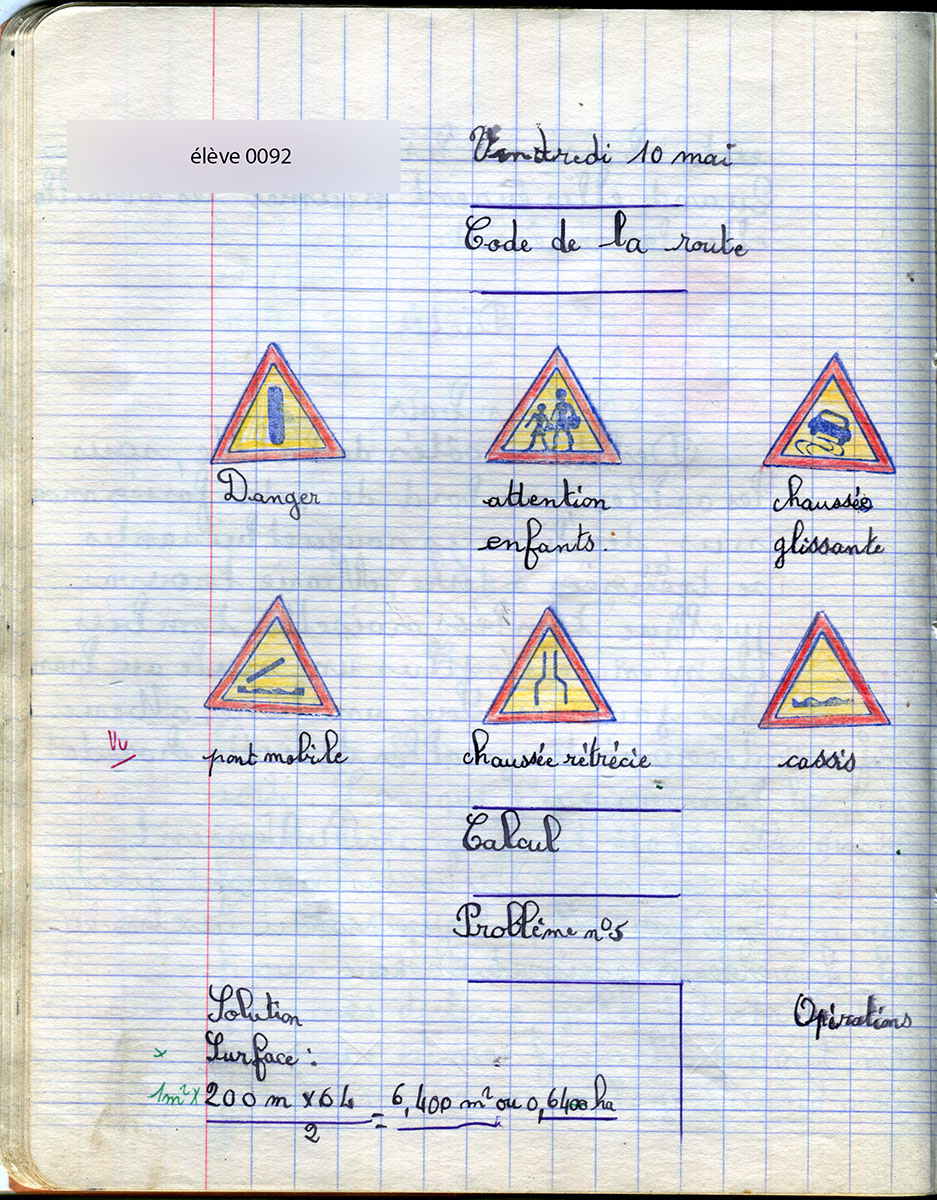 élève 0092
Vendredi 10 mai
Code de la route
Danger
attention
enfants.
chaussée
glissante
pont mobile
chaussée rétrécie
cassis
Vu
Calcul
Problème n°5
Solution
Opérations
Surface :
x
1m² x 200 m x 64 / 2 = 6,400 m² ou 0,6400 ha